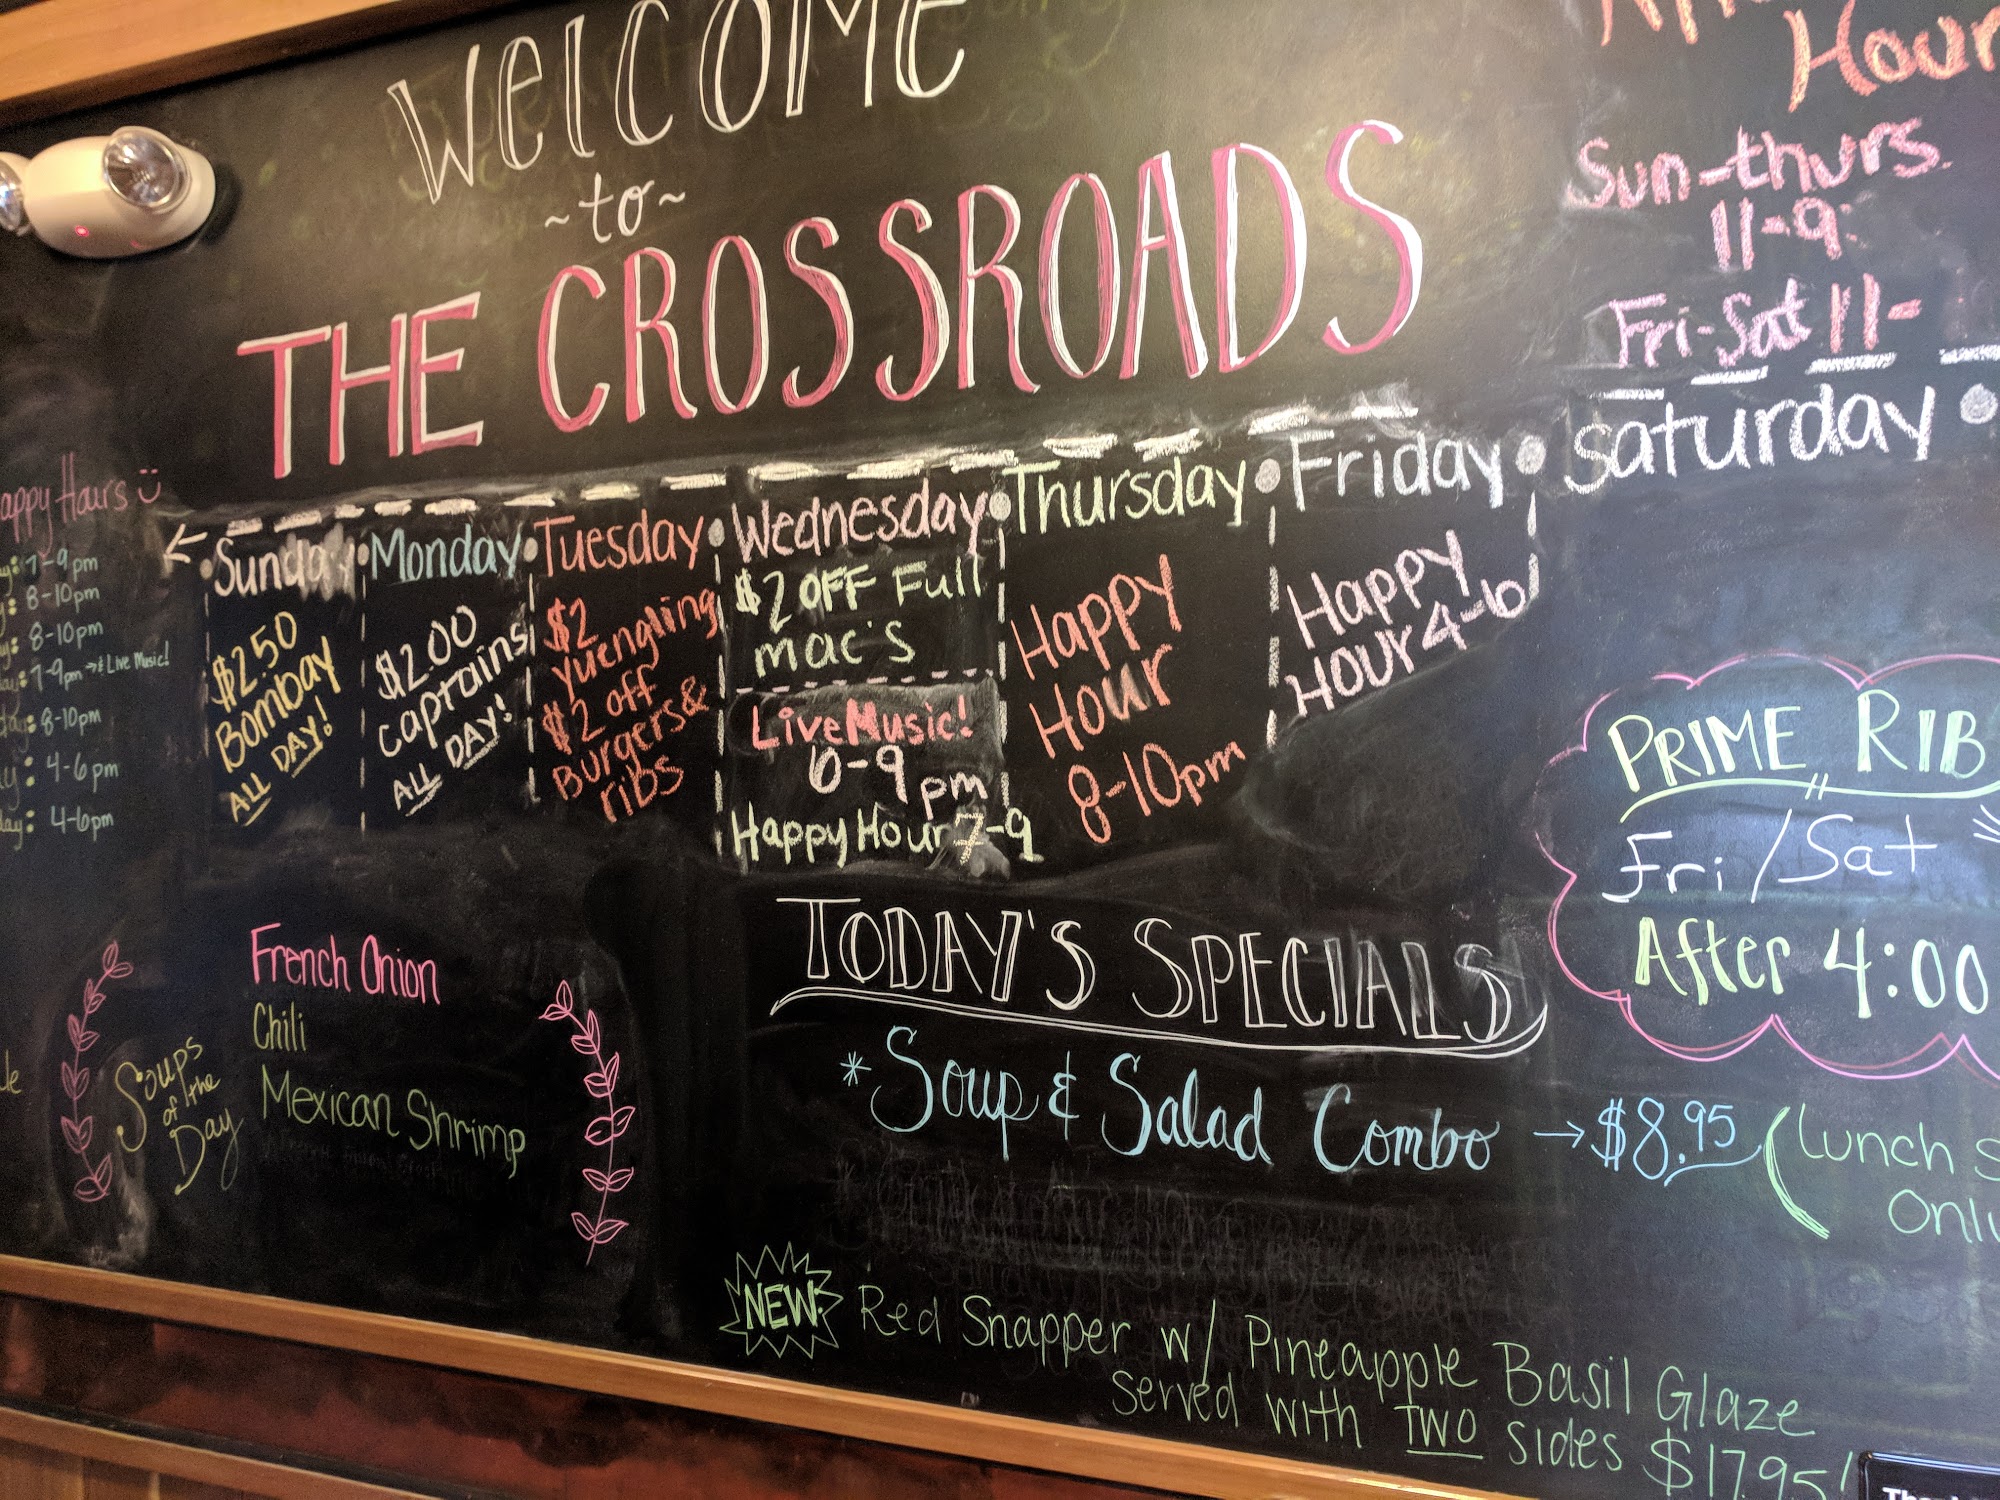 Welcome
~to~
THE CROSSROADS
Hour
Sun-thurs.
11-9
Fri-Sat 11-
appy Hours
7-9pm
8-10pm
8-10pm
7-9pm → & Live Music!
8-10pm
4-6pm
4-6pm
Sunday
$2.50
Bombay
ALL DAY!
Monday
$2.00
Captains
ALL DAY!
Tuesday
$2
Yuengling
$2 off
Burgers &
ribs
Wednesday
$2 OFF Full
mac's
Live Music!
6-9pm
Happy Hour 7-9
Thursday
Happy
Hour
8-10pm
Friday
Happy
Hour 4-6
Saturday
PRIME RIB
Fri/Sat
After 4:00
Soups
of the
Day
French Onion
Chili
Mexican Shrimp
TODAY'S SPECIALS
* Soup & Salad Combo → $8.95 (Lunch
NEW! Red Snapper w/ Pineapple Basil Glaze
Served with TWO sides $17.95!